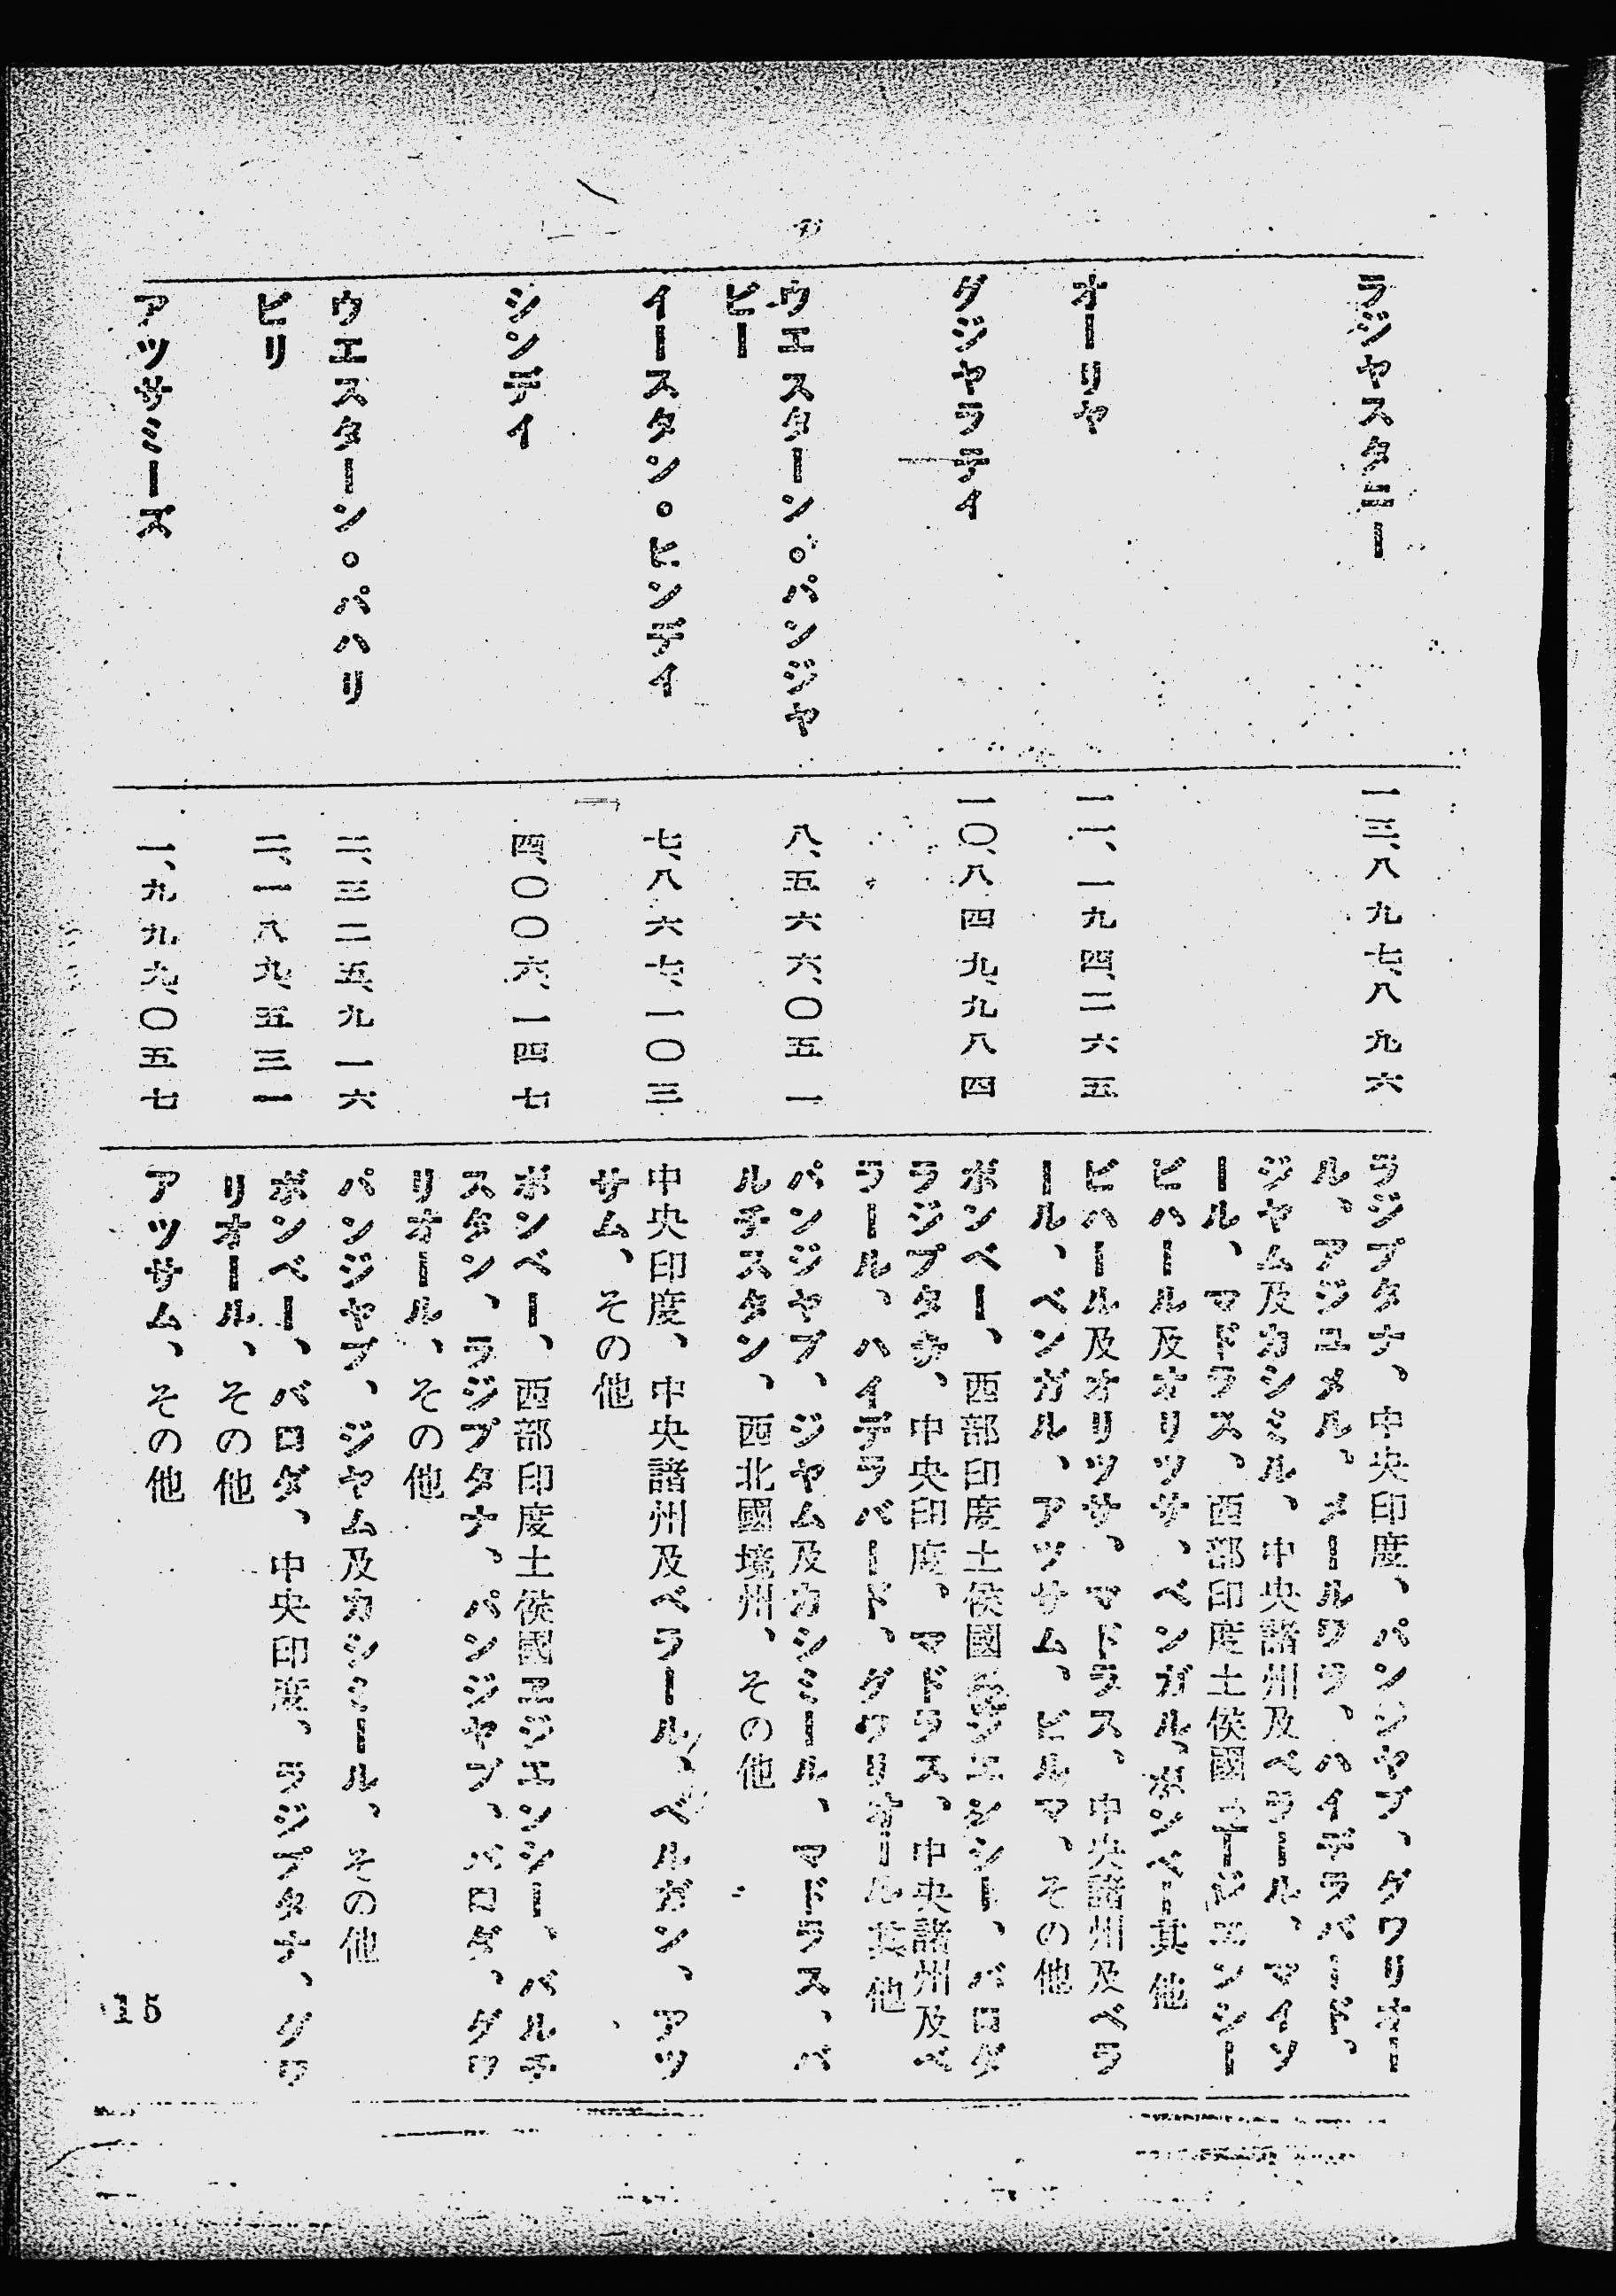 ラジヤスタニー
一三、八九七、八九六
ラジプタナ、中央印度、パンジヤブ、グワリオー
ル、アジユメル、メールワラ、ハイデラバード、
ジヤム及カシミル、中央諸州及ベラール、マイソ
ール、マドラス、西部印度土侯國エージエンシー
ビハール及オリツサ、ベンガル、ボンベー其他
オーリヤ
一一、一九四、二六五
ビハール及オリツサ、マドラス、中央諸州及ベラ
ール、ベンガル、アツサム、ビルマ、その他
グジヤラテイ
一〇、八四九、九八四
ボンベー、西部印度土侯國エジエンシー、バロダ
ラジプタナ、中央印度、マドラス、中央諸州及ベ
ラール、ハイデラバード、グワリオール其他
ウエスターン。パンジヤ
ビー
八、五六六、〇五一
パンジヤブ、ジヤム及カシミール、マドラス、バ
ルチスタン、西北國境州、その他
イースタン。ヒンデイ
七、八六七、一〇三
中央印度、中央諸州及ベラール、ベルガン、アツ
サム、その他
シンデイ
四、〇〇六、一四七
ボンベー、西部印度土侯國エジエンシー、バルチ
スタン、ラジプタナ、パンジヤブ、バロダ、グワ
リオール、その他
ウエスターン。パハリ
二、三二五、九一六
パンジヤブ、ジヤム及カシミール、その他
ビリ
二、一八九、五三一
ボンベー、バロダ、中央印度、ラジプタナ、グワ
リオール、その他
アツサミーズ
一、九九九、〇五七
アツサム、その他
15